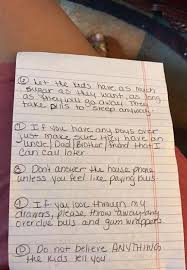 Let the kids have as much
sugar as they want, as long
as they will go away. They
take pills to sleep anyway.
If you have any boys over
just make sure they have an
uncle/Dad/Brother/friend that I
can call later.
Don't answer the house phone
unless you feel like paying bills
If you look through my
drawers, please throw away any
overdue bills and gum wrappers.
Do not believe ANYTHING
the kids tell you